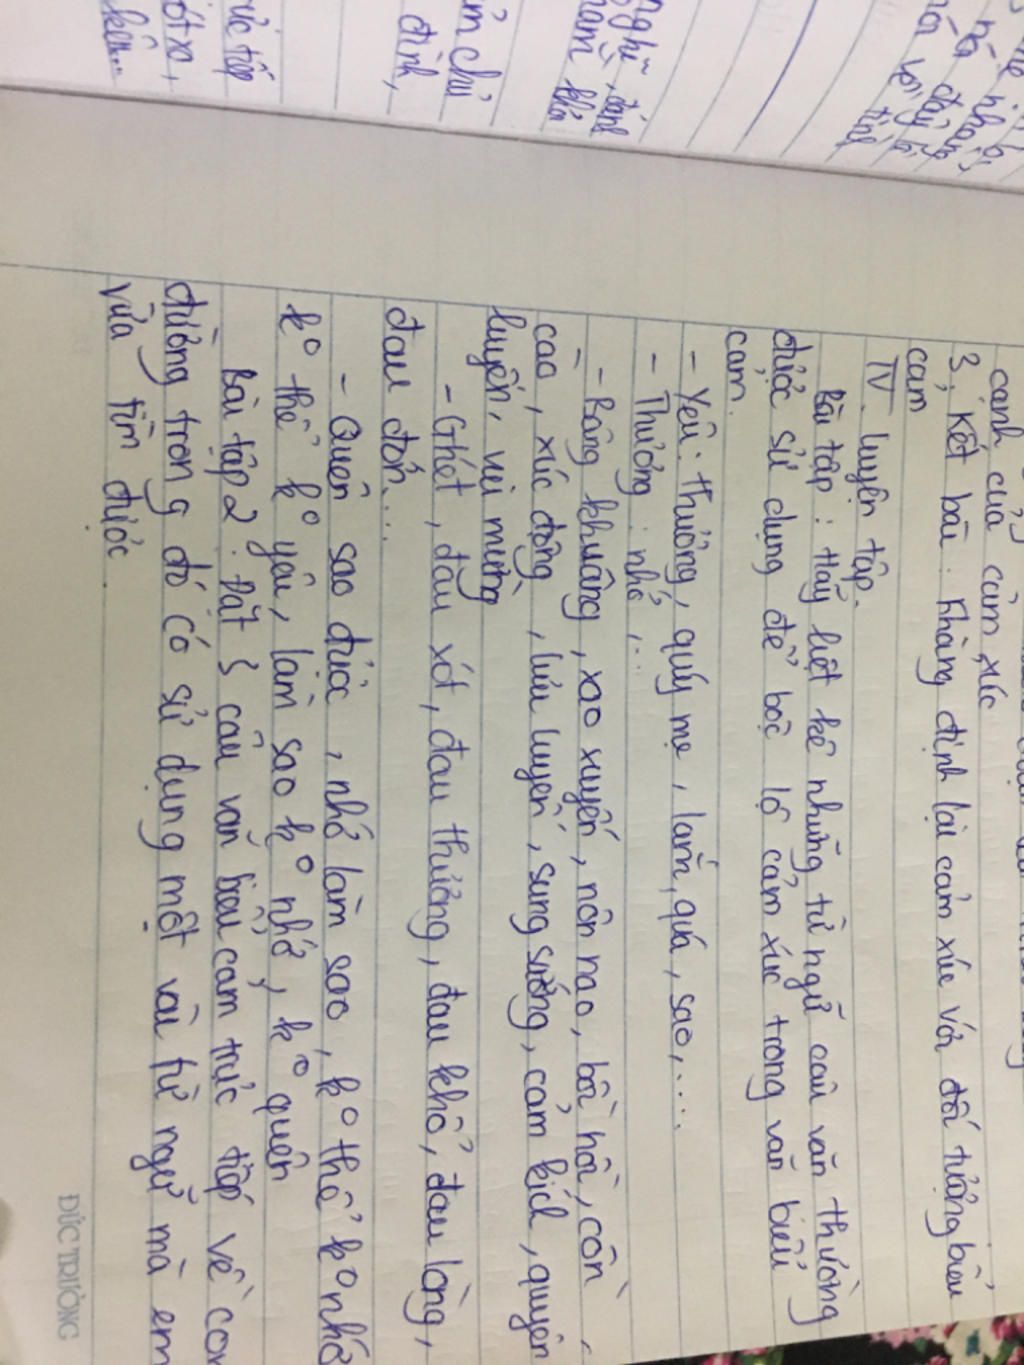 cạnh của cảm xúc
3, Kết bài: Khẳng định lại cảm xúc với đối tượng biểu
cảm
IV. Luyện tập.
Bài tập: Hãy liệt kê những từ ngữ câu văn thường
được sử dụng để bộc lộ cảm xúc trong văn biểu
cảm.
- Yêu: thương, quý mẹ, lắm, quá, sao,....
- Thương: nhớ,...
- Bâng khuâng, xao xuyến, nôn nao, bồi hồi, cồn
cào, xúc động, lưu luyến, sung sướng, cảm kích, quyến
luyến, vui mừng
- Ghét, đau xót, đau thương, đau khổ, đau lòng,
đau đớn...
- Quên sao được, nhớ làm sao, ko thể ko nhớ
ko thể ko yêu, làm sao ko nhớ, ko quên
Bài tập 2: Đặt 3 câu văn biểu cảm trực tiếp về con
đường trong đó có sử dụng một vài từ ngữ mà em
vừa tìm được.
ĐỨC TRƯỜNG